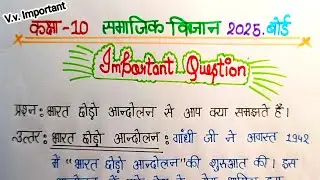 V.v. Important
कक्षा-10 सामाजिक विज्ञान 2025. बोर्ड
Important Question
प्रश्न: भारत छोड़ो आन्दोलन से आप क्या समझते हैं।
उत्तर: भारत छोड़ो आन्दोलन: गांधी जी ने अगस्त 1942
में "भारत छोड़ो आन्दोलन" की शुरुआत की। इस